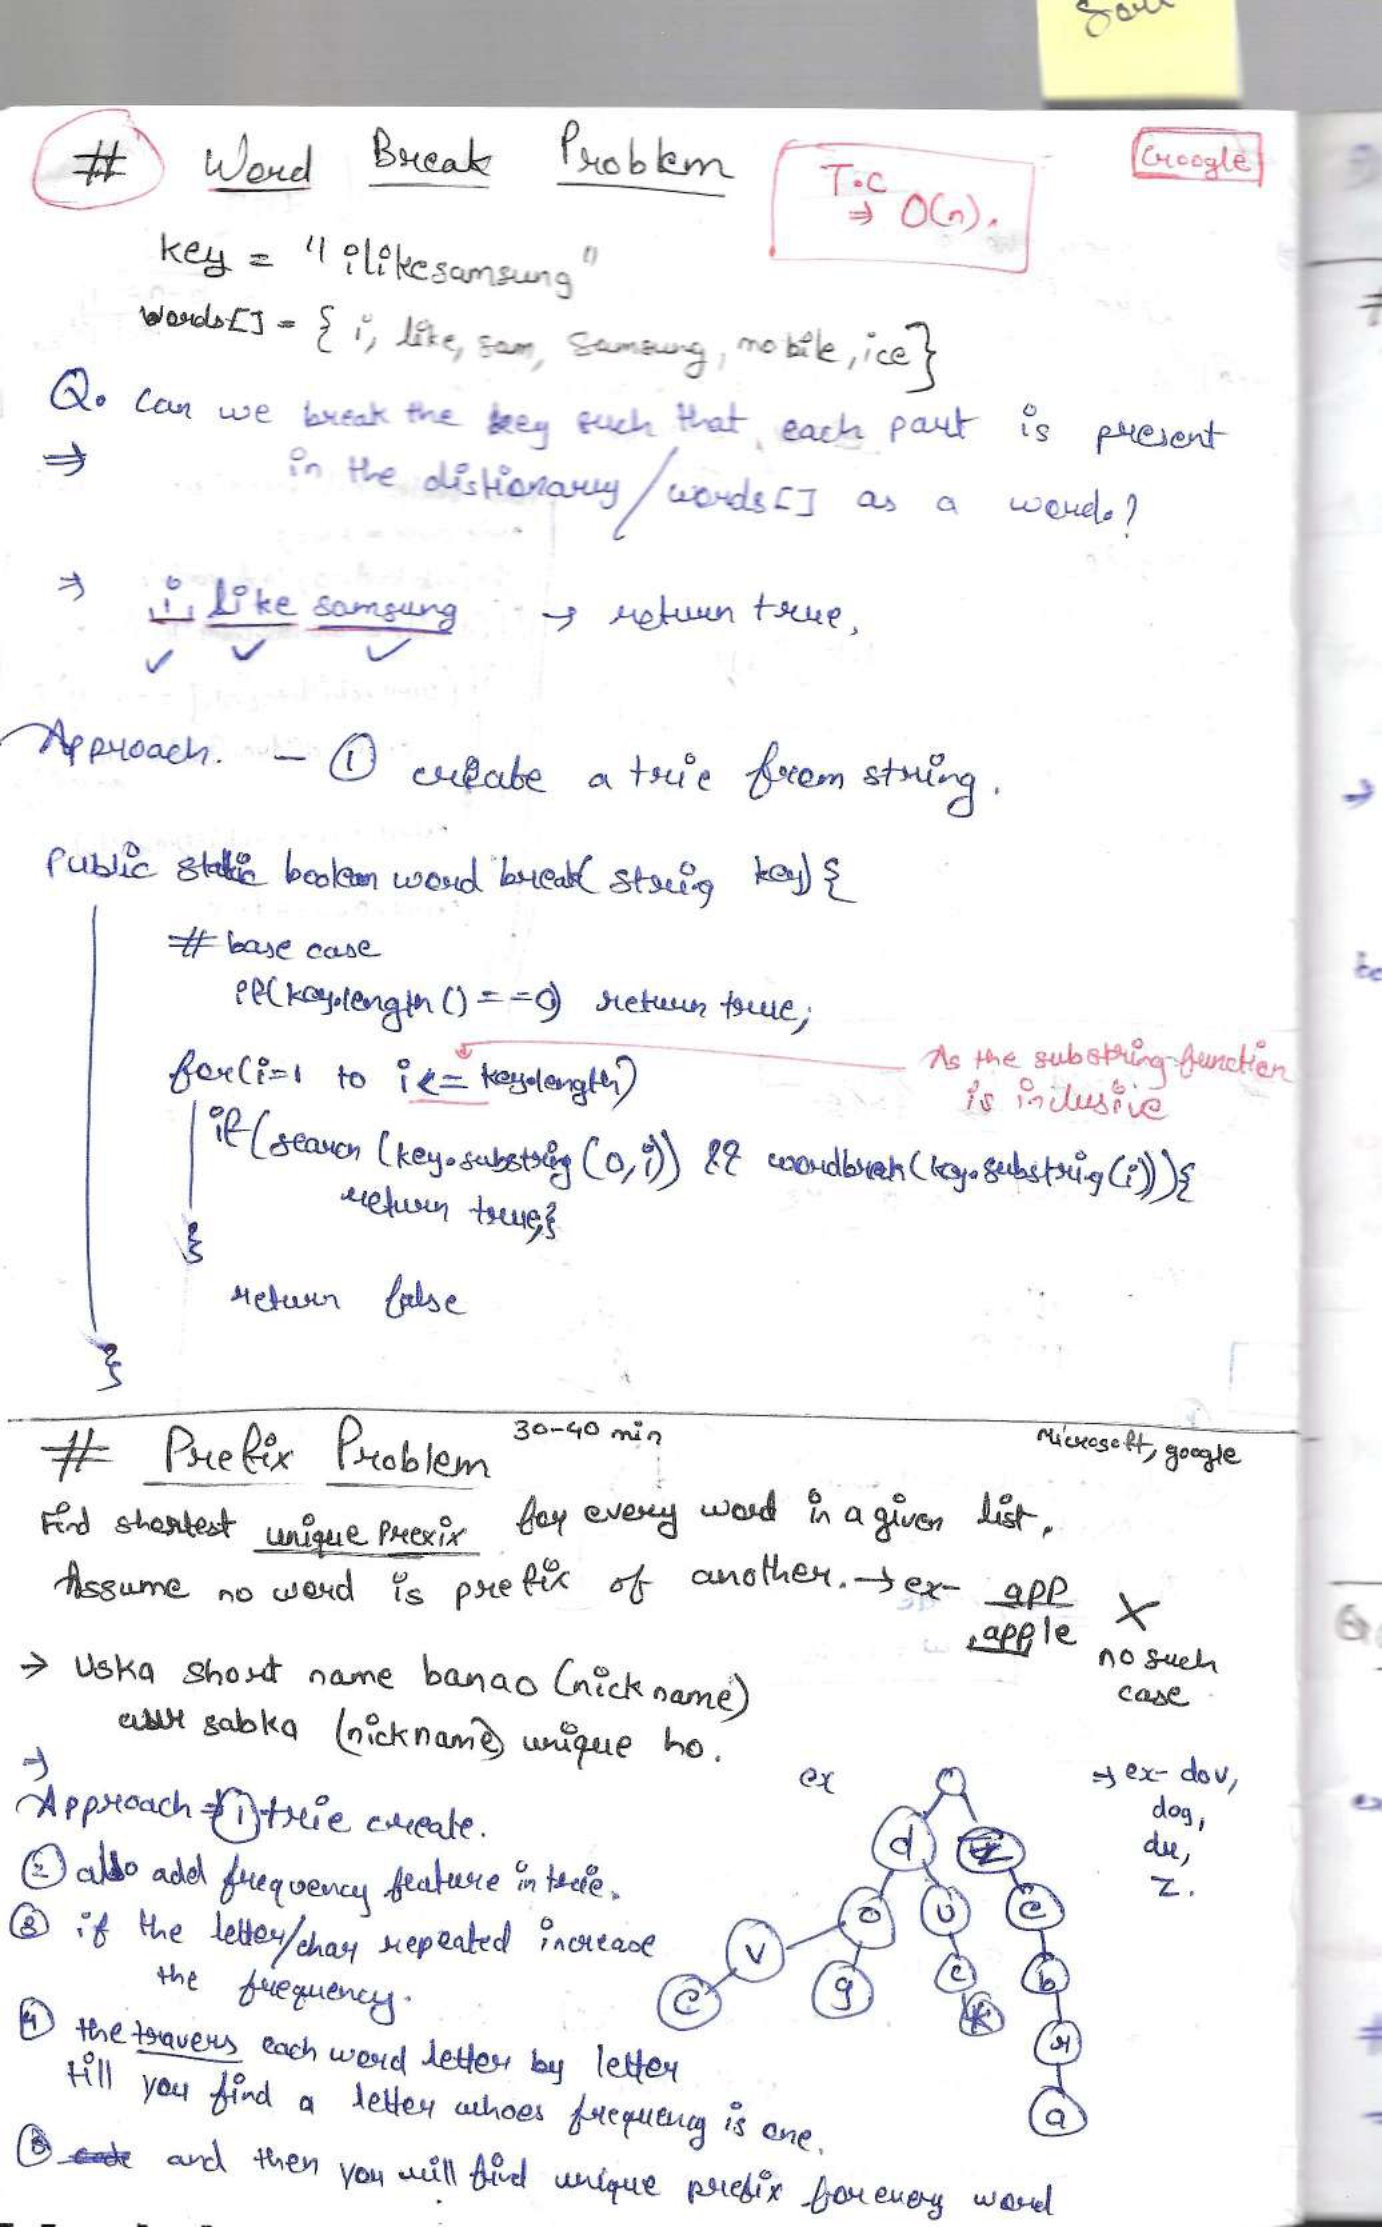 # Word Break Problem
T.C
⇒ O(n).
Google
key = "ilikesamsung"
words[] = { i, like, sam, samsung, mobile, ice}
Q. Can we break the key such that, each part is present
⇒ in the distionary/words[] as a word.?
→ i like samsung → return true,
Approach. - ① create a trie from string.
Public static boolean word break( string key) {
# base case
if(key.length() == 0) return true;
for(i=1 to i<= key.length)
As the substring function
is inclusive
if(search (key.substring(0,i)) && wordbreak(key.substring(i))){
return true;}
}
return false
}
# Prefix Problem 30-40 min
Microsoft, google
Find shortest unique Prexix for every word in a given list.
Assume no word is prefix of another. → ex- app
apple
X
no such
case
→ Uska short name banao (nick name)
aur sabka (nickname) unique ho.
→
Approach → ① trie create.
② also add frequency feature in trie.
③ if the letter/char repeated increase
the frequency.
④ the travers each word letter by letter
till you find a letter whoes frequency is one.
⑤ and then you will find unique prefix for every word
ex
d
o
u
e
v
g
c
b
e
k
r
a
→ ex- dov,
dog,
du,
z.